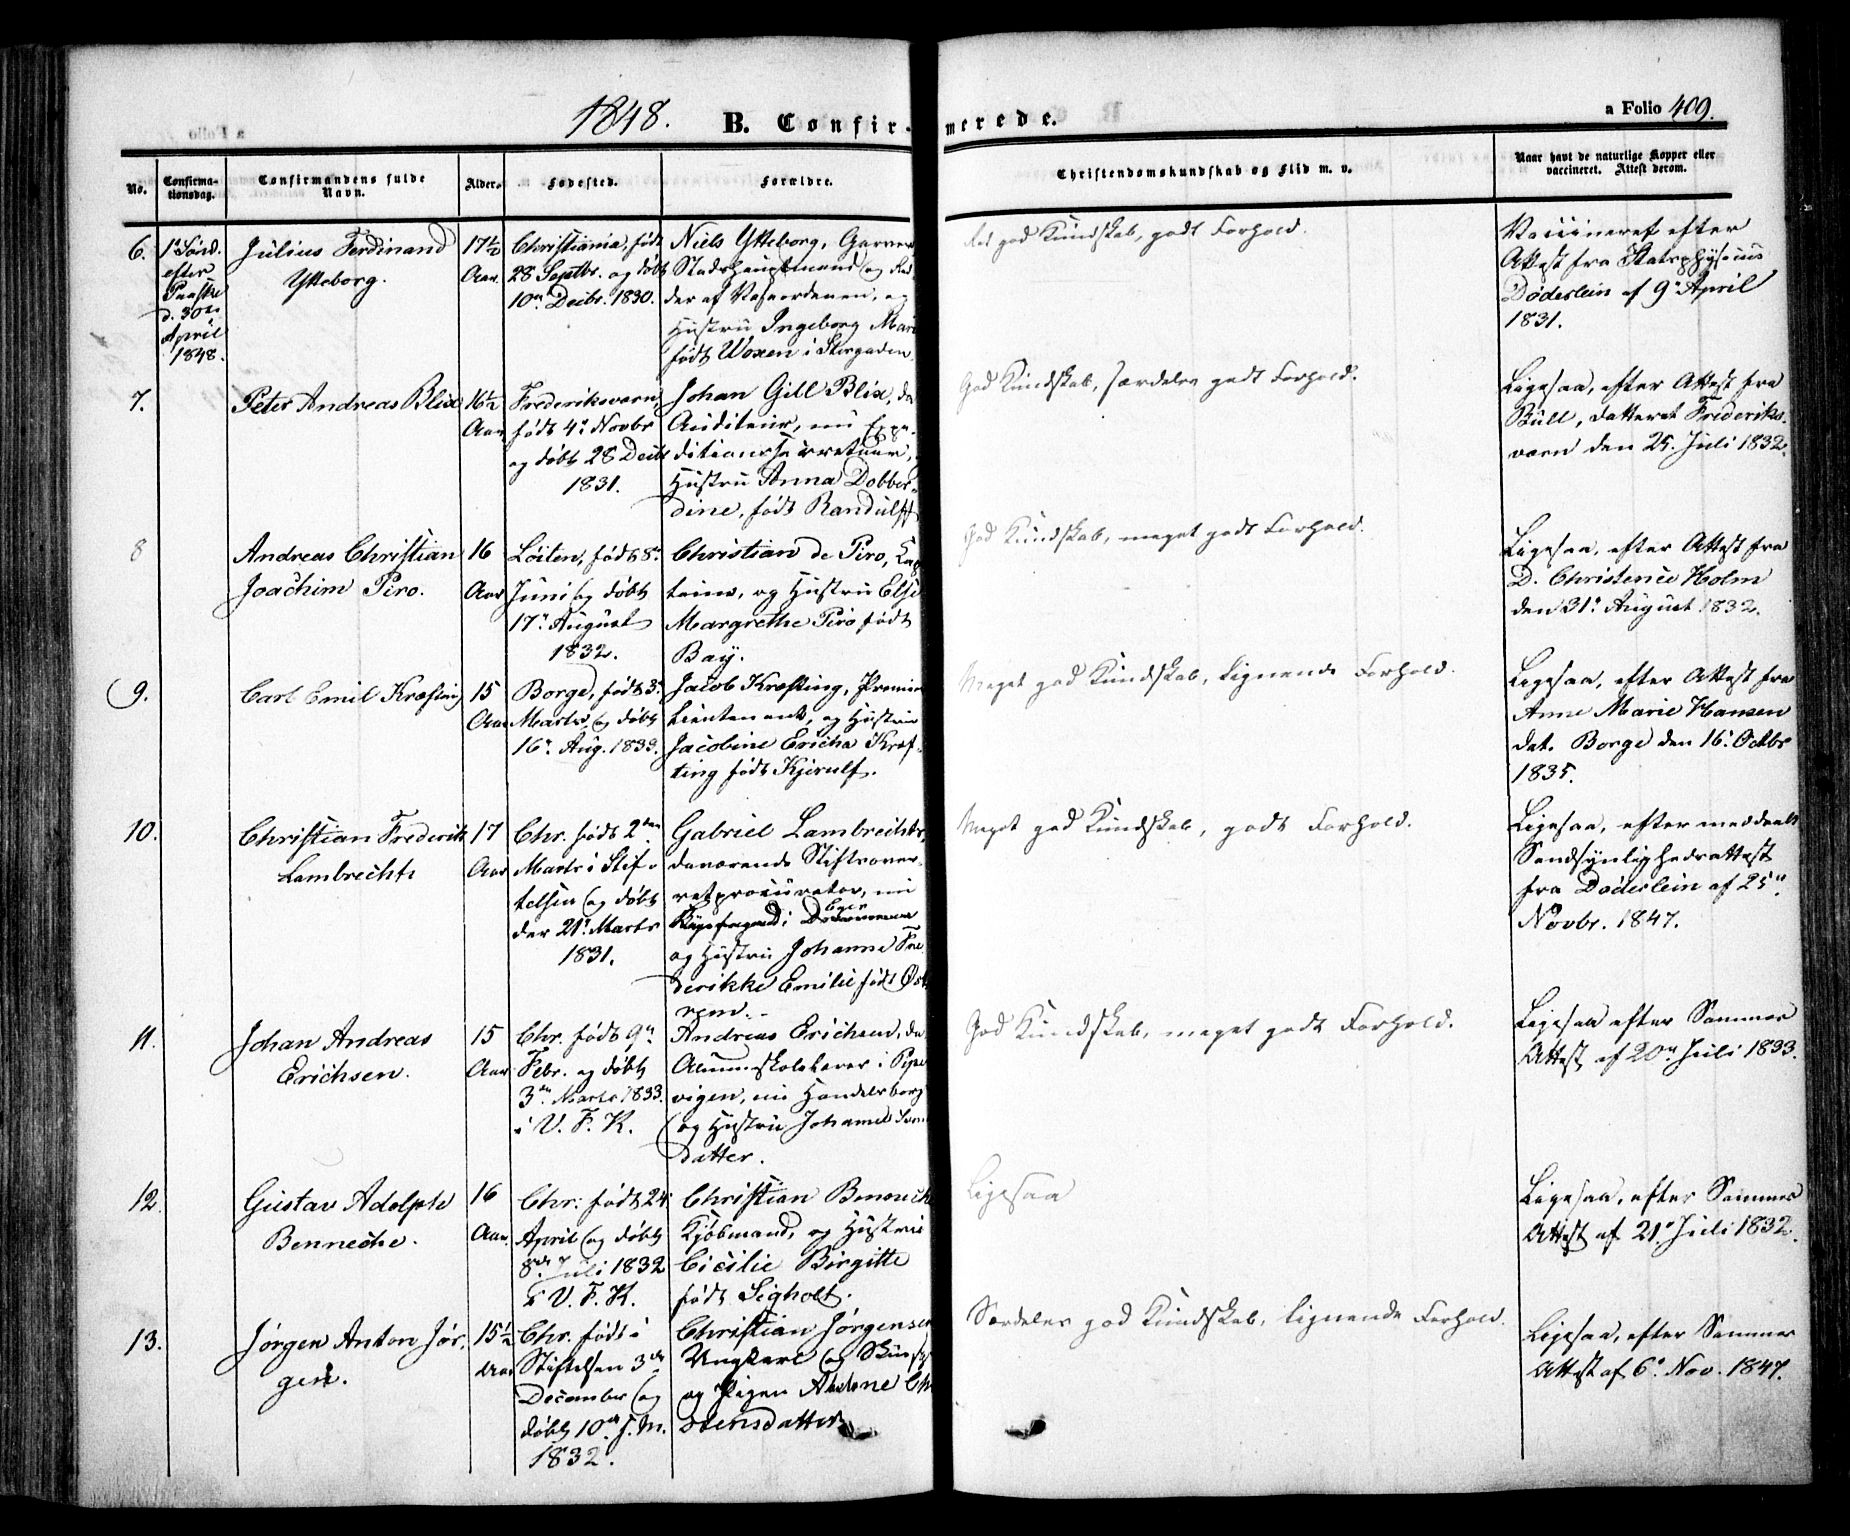 1848. B. Confirmerede. a Folio 409.
No. Confirma-tionsdag. Confirmandens fulde Navn. Alder. Fødested. Forældre. Christendomskundskab og Flid m. v. Naar havt de naturlige Kopper eller vaccineret. Attest derom.
6.
1ste Sønd.
efter
Paaske
d. 30te
April
1848.
Julius Ferdinand
Ytteborg.
17½
Aar
Christiania, født
28 Septbr. og døbt
10de Decbr. 1830.
Niels Ytteborg, Garver
Stadshauptmand og Rid
der af Vasaordenen, og
Hustru Ingeborg Mari
født Woxen i Storgaden.
god Kundskab, godt Forhold.
Vaccineret efter
Attest fra Statsphysicus
Døderlein af 9de April
1831.
7.
Peter Andreas Blix
16½
Aar
Frederiksværn,
født 4de Novbr
og døbt 28 Decbr
1831.
Johan Gill Blix, da
Auditeur, nu Expe-
ditionssecretair,
Hustru Anna Dobber-
dine, født Randulff
God Kundskab, særdeles godt Forhold.
Ligesaa, efter Attest fra
Bull, dateret Frederiks-
værn den 25. Juli 1832.
8
Andreas Christian
Joachim Piro.
16
Aar
Løiten, født 8de
Juni og døbt
17de August
1832.
Christian de Piro, Cap
tain, og Hustru Else
Margrethe Piro født
Bay.
God Kundskab, meget godt Forhold.
Ligesaa, efter Attest fra
D. Christence Holm
den 31te August 1832.
9.
Carl Emil Kræfting
15
Aar
Borge, født 3de
Marts, og døbt
16de Aug. 1833.
Jacob Kræfting, Premier
Lieutenant, og Hustru
Jacobine Ericha Kræf-
ting født Kjerulf.
Meget god Kundskab, lignende Forhold.
Ligesaa, efter Attest fra
Anne Marie Hansen
dat. Borge den 16de Octbr
1835.
10.
Christian Frederik
Lambrechts
17
Aar
Chr. født 2den
Marts i Stif-
telsen og døbt
der 21de Marts
1831.
Gabriel Lambrechts,
daværende Stiftsover-
retprocurator, nu
Eger
og Hustru Johanne Fre
derikke Emilie født Øst
rem.
Meget god Kundskab, godt Forhold.
Ligesaa, efter meddeelt
Sandsynlighedsattest
fra Døderlein af 25de
Novbr. 1847.
11.
Johan Andreas
Erichsen.
15
Aar
Chr. født 9de
Febr. og døbt
3die Marts 1833.
i V. F. K.
Andreas Erichsen, da
Almueskolelærer i Pipe
vigen, nu Handelsborg
og Hustru Johanne
datter.
God Kundskab, meget godt Forhold.
Ligesaa efter Sammes
Attest af 20de Juli 1833.
12.
Gustav Adolph
Benneche.
16
Aar
Chr: født 24
April og døbt
8de Juli 1832
i V. F. K.
Christian Benneche
Kjøbmand, og Hustru
Cicilie Birgitte
født Sigholt.
Ligesaa
Ligesaa, efter Sammes
Attest af 21de Juli 1832.
13.
Jørgen Anton Jør-
gens.
15½
Aar
Chr. født i
Stiftelsen 3de
December og
døbt 10de s. M.
1832.
Christian Jørgensen
Ungkarl og
og Pigen
stensdatter
Særdeles god Kundskab, lignende Forhold.
Ligesaa, efter Sammes
Attest af 6te Nov. 1847.